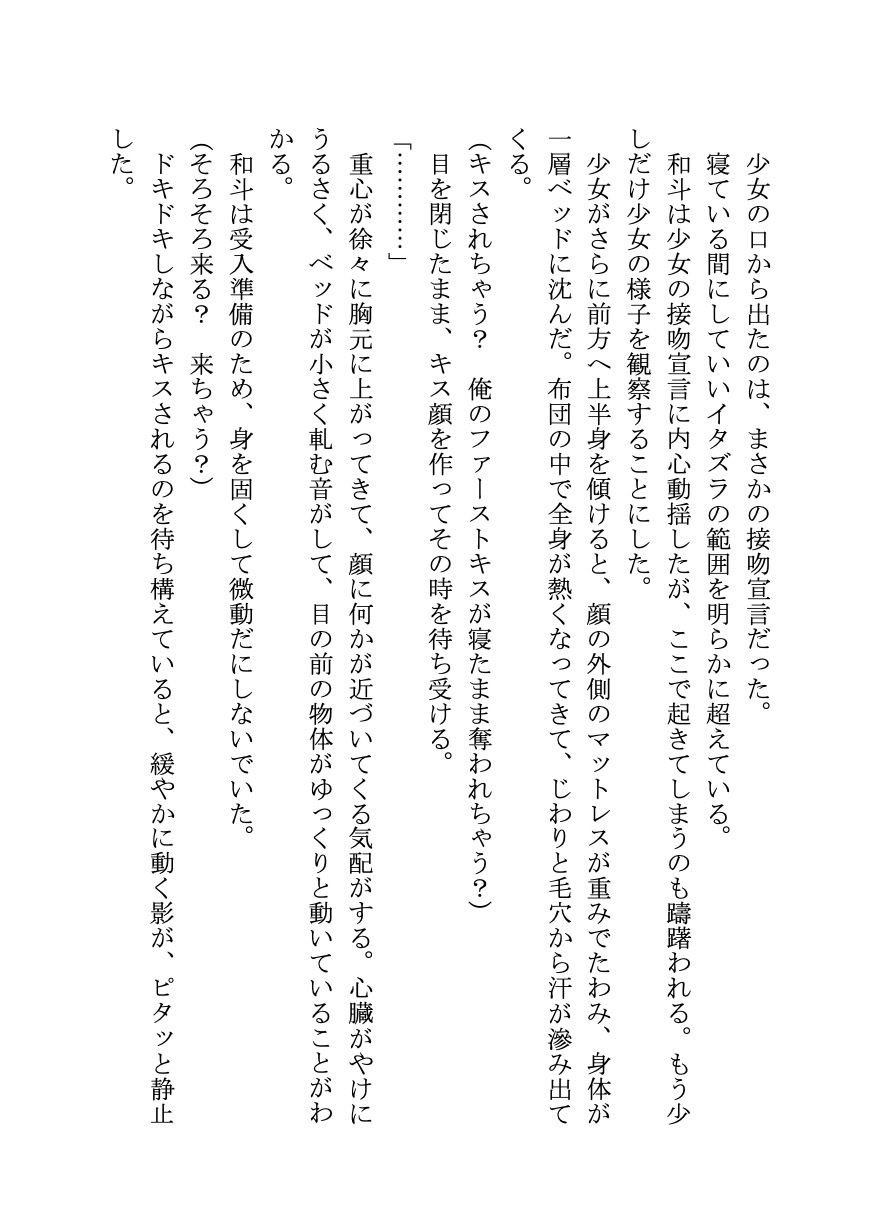 少女の口から出たのは、まさかの接吻宣言だった。
寝ている間にしていいイタズラの範囲を明らかに超えている。
和斗は少女の接吻宣言に内心動揺したが、ここで起きてしまうのも躊躇われる。もう少
しだけ少女の様子を観察することにした。
少女がさらに前方へ上半身を傾けると、顔の外側のマットレスが重みでたわみ、身体が
一層ベッドに沈んだ。布団の中で全身が熱くなってきて、じわりと毛穴から汗が滲み出て
くる。
(キスされちゃう？　俺のファーストキスが寝たまま奪われちゃう？)
目を閉じたまま、キス顔を作ってその時を待ち受ける。
「…………」
重心が徐々に胸元に上がってきて、顔に何かが近づいてくる気配がする。心臓がやけに
うるさく、ベッドが小さく軋む音がして、目の前の物体がゆっくりと動いていることがわ
かる。
和斗は受入準備のため、身を固くして微動だにしないでいた。
(そろそろ来る？　来ちゃう？)
ドキドキしながらキスされるのを待ち構えていると、緩やかに動く影が、ピタッと静止
した。